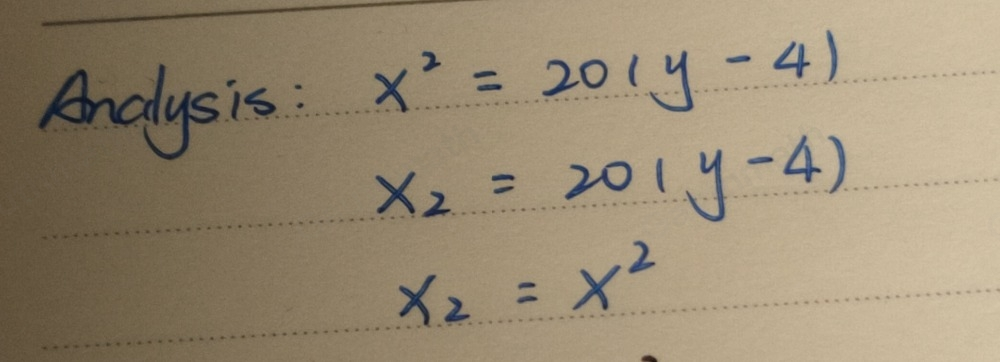 Analysis: x² = 20(y - 4)
x₂ = 20(y - 4)
x₂ = x²